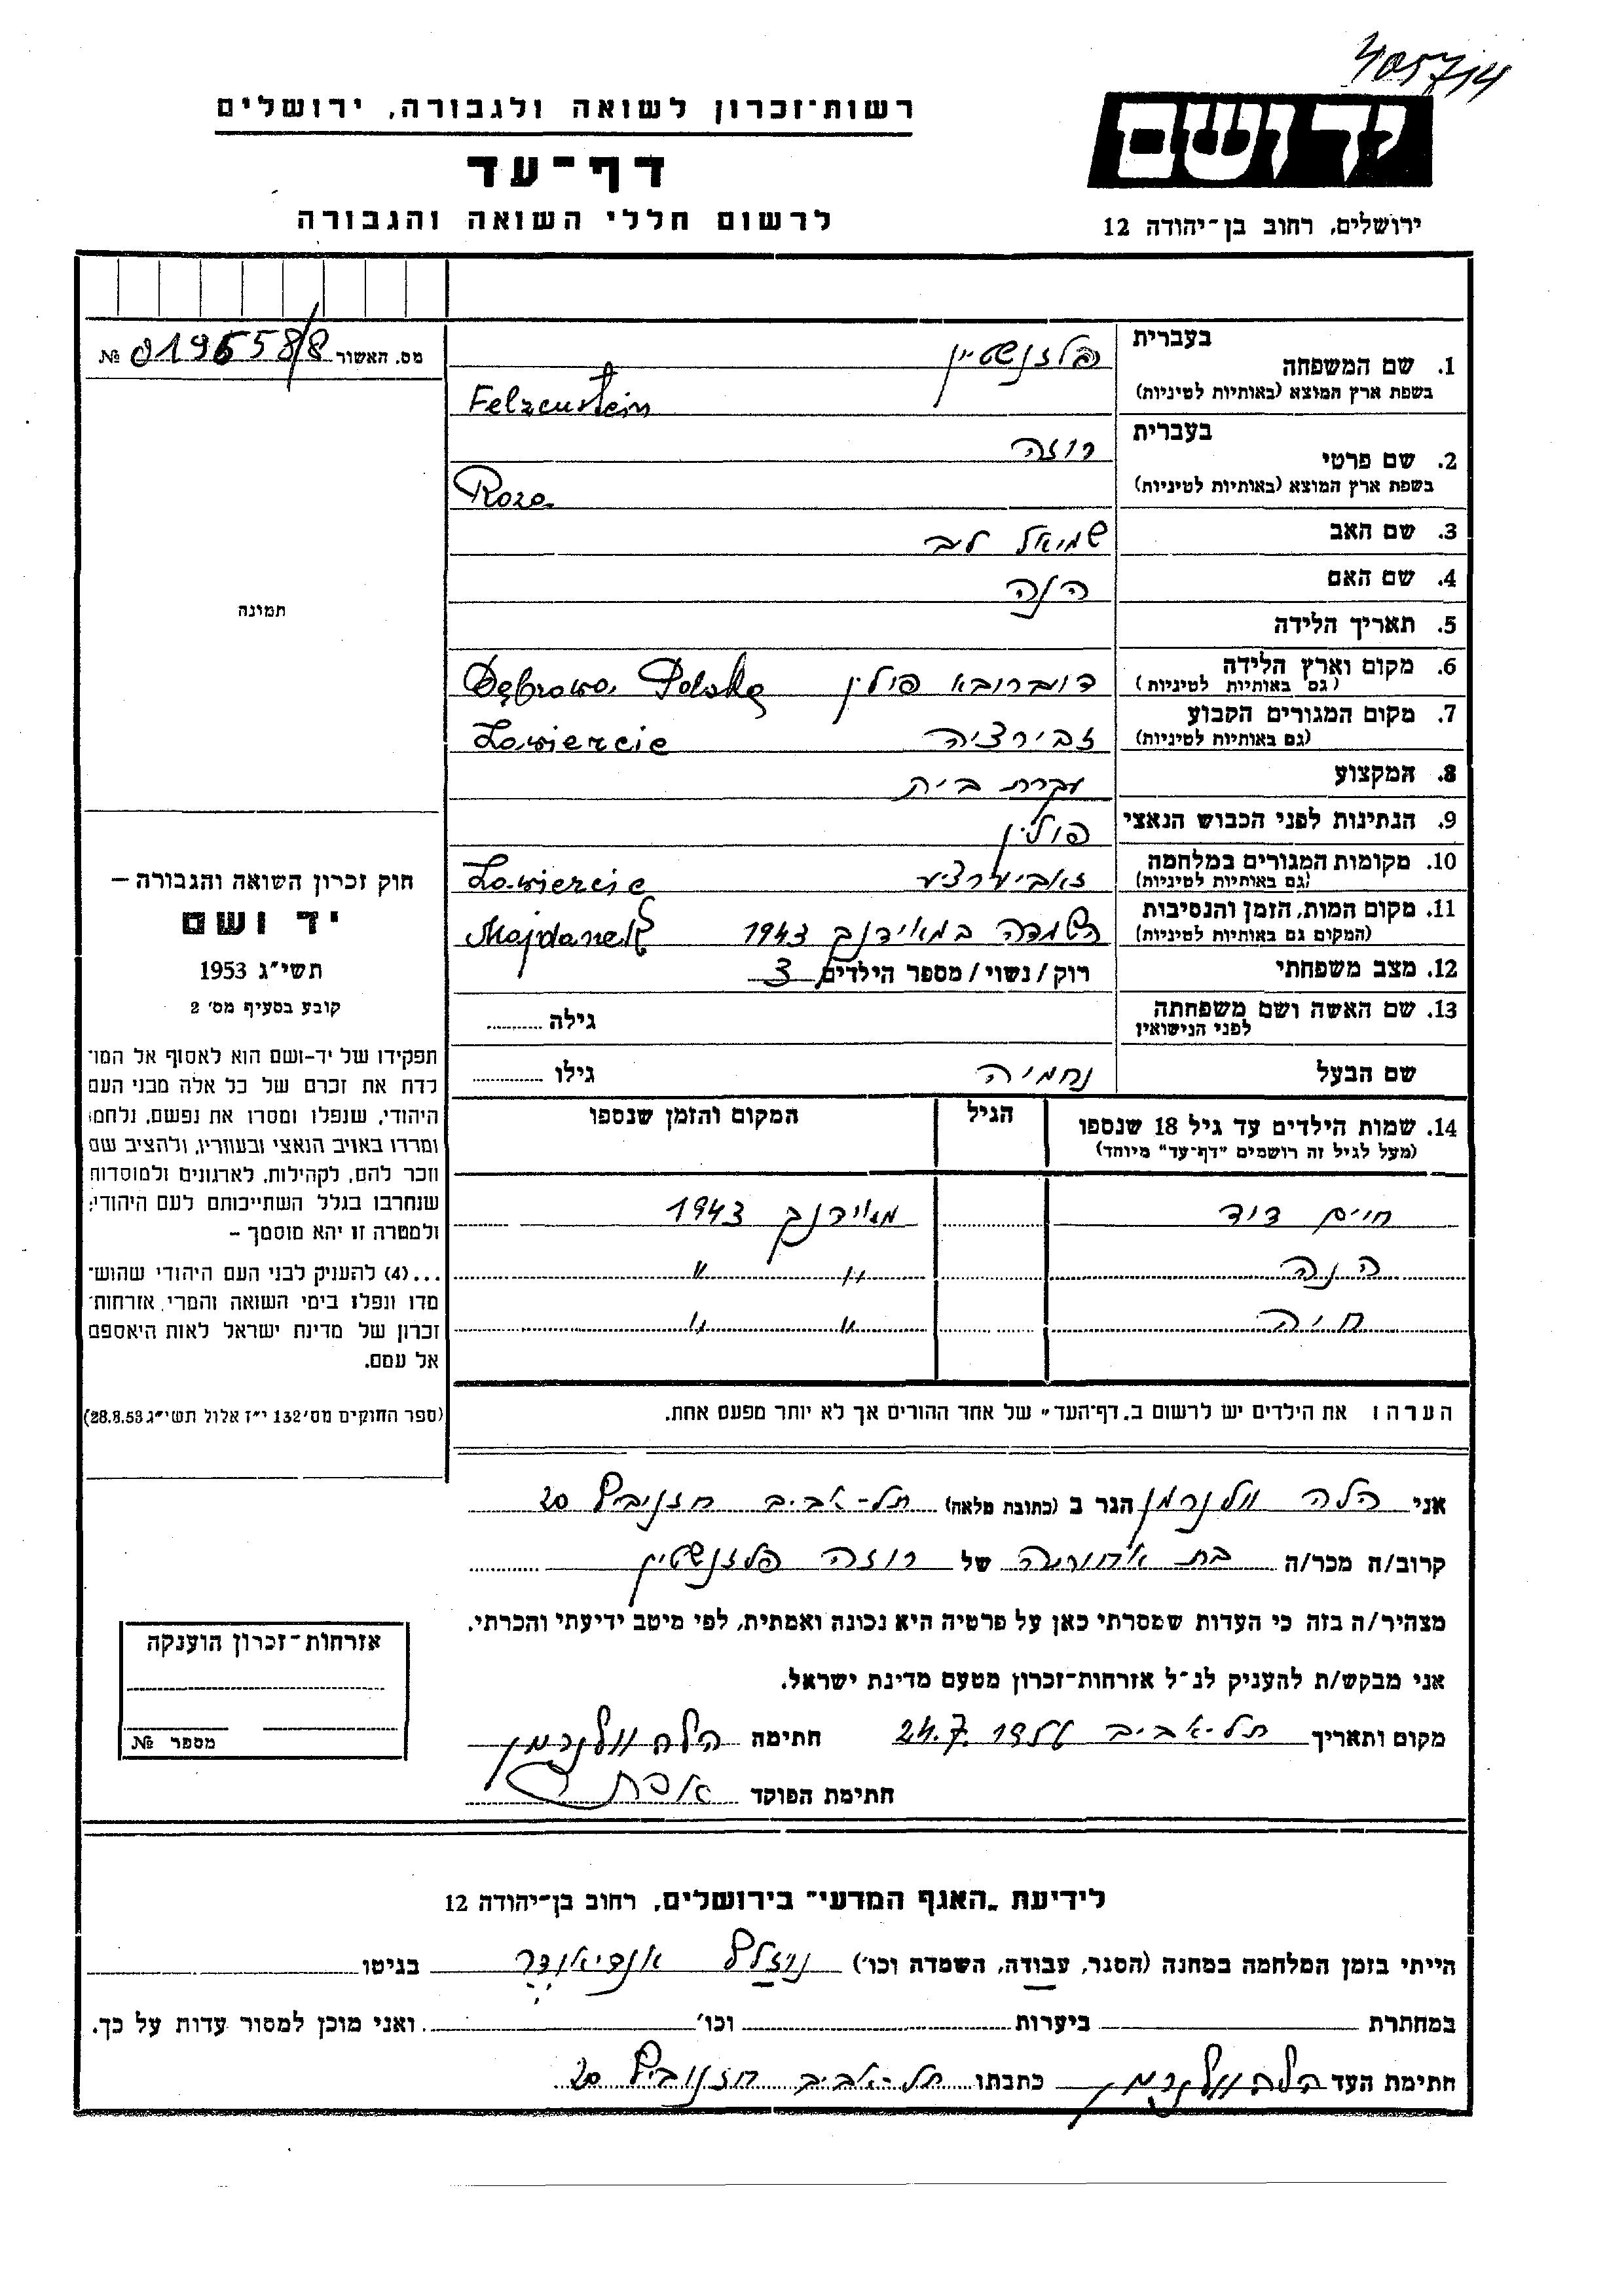 405714
יד ושם
ירושלים, רחוב בן־יהודה 12
רשות־זכרון לשואה ולגבורה, ירושלים
דף־עד
לרשום חללי השואה והגבורה
מס. האשור 8/319658 №
בעברית
1. שם המשפחה
בשפת ארץ המוצא (באותיות לטיניות)
פלזנשטיין
Felzenstein
בעברית
2. שם פרטי
בשפת ארץ המוצא (באותיות לטיניות)
רוזה
Roza
3. שם האב שמיאל ליב
4. שם האם הנה
5. תאריך הלידה
6. מקום וארץ הלידה
(גם באותיות לטיניות)
דומברובא פולין Dąbrowa Polska
7. מקום המגורים הקבוע
(גם באותיות לטיניות)
זבירציה Zawiercie
8. המקצוע עקרת בית
9. הנתינות לפני הכבוש הנאצי פולין
10. מקומות המגורים במלחמה
(גם באותיות לטיניות)
Zawiercie
11. מקום המות, הזמן והנסיבות
(המקום גם באותיות לטיניות)
השמדה במאידנק 1943 Majdanek
12. מצב משפחתי רוק/נשוי/מספר הילדים 3
13. שם האשה ושם משפחתה
לפני הנישואין
גילה
שם הבעל נחמיה גילו
14. שמות הילדים עד גיל 18 שנספו
(מעל לגיל זה רושמים "דף־עד" מיוחד)
הגיל
המקום והזמן שנספו
חיים דוד מאידנק 1943
הנה " "
חיה " "
הערה: את הילדים יש לרשום ב„דף־העד" של אחד ההורים אך לא יותר מפעם אחת.
תמונה
חוק זכרון השואה והגבורה —
יד ושם
תשי"ג 1953
קובע בסעיף מס' 2
תפקידו של יד-ושם הוא לאסוף אל המו־
לדת את זכרם של כל אלה מבני העם
היהודי, שנפלו ומסרו את נפשם, נלחמו
ומרדו באויב הנאצי ובעוזריו, ולהציב שם
וזכר להם, לקהילות, לארגונים ולמוסדות
שנחרבו בגלל השתייכותם לעם היהודי;
ולמטרה זו יהא מוסמך –
...(4) להעניק לבני העם היהודי שהוש־
מדו ונפלו בימי השואה והמרי, אזרחות־
זכרון של מדינת ישראל לאות היאספם
אל עמם.
(ספר החוקים מס' 132 י"ז אלול תשי"ג 28.8.53)
אני הלה וולנרמן הגר ב (כתובת מלאה) תל-אביב 20
קרוב/ה מכר/ה בת של רוזה פלזנשטין
מצהיר/ה בזה כי העדות שמסרתי כאן על פרטיה היא נכונה ואמתית, לפי מיטב ידיעתי והכרתי.
אני מבקש/ת להעניק לנ"ל אזרחות־זכרון מטעם מדינת ישראל.
מקום ותאריך תל-אביב 24.7. חתימה הלה וולנרמן
חתימת הפוקד
אזרחות־זכרון הוענקה
מספר №
לידיעת „האגף המדעי" בירושלים, רחוב בן־יהודה 12
הייתי בזמן המלחמה במחנה (הסגר, עבודה, השמדה וכו') בגיטו
במחתרת ביערות וכו' ואני מוכן למסור עדות על כך.
חתימת העד הלה וולנרמן כתבתו תל-אביב 20